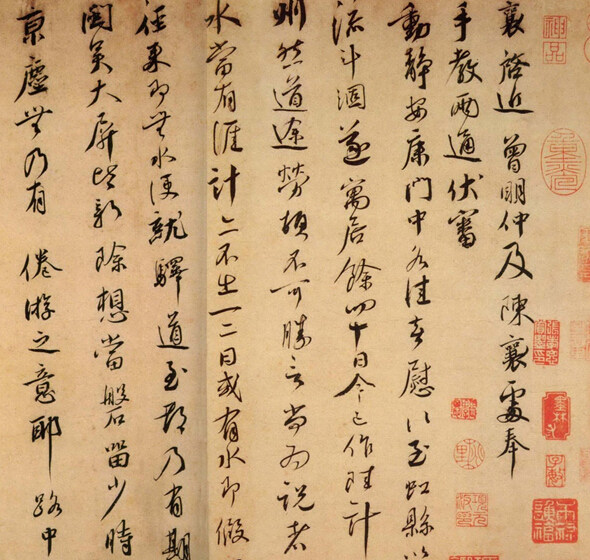 襄啓近 曾明仲及陳襄處奉
手教兩通伏審
動靜安康門中各佳喜慰以至虹縣以
流斗涸遂寓居餘四十日今已作陸計
州然道途勞頓不可勝言尚為說者
水當有涯計亦不出一二日或有水即假
徑來即無水便就驛道至都乃有期
閩吳大屏皆新除想當磐留少時
京塵無乃有 倦游之意耶路中
神品